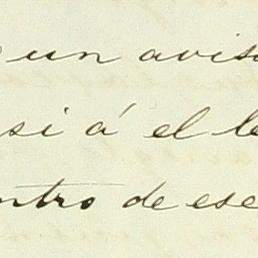 un avis
si á el le
ntro de ese